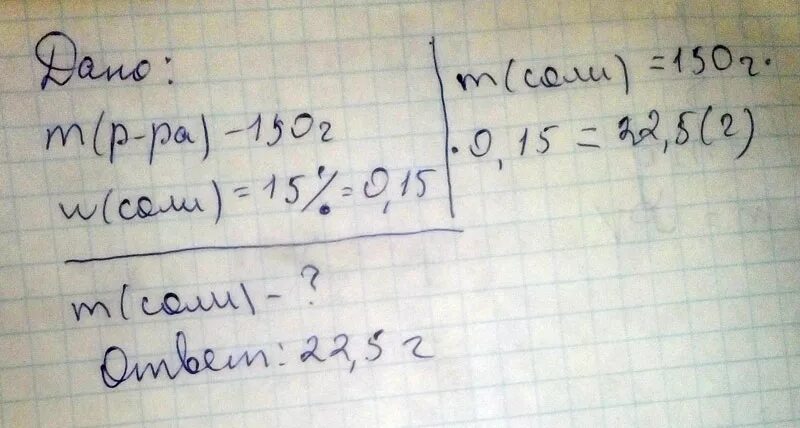 Дано:
m(р-ра) – 150 г
w(соли) = 15% = 0,15
m(соли) – ?
Ответ: 22,5 г
m(соли) = 150 г ·
· 0,15 = 22,5 (г)